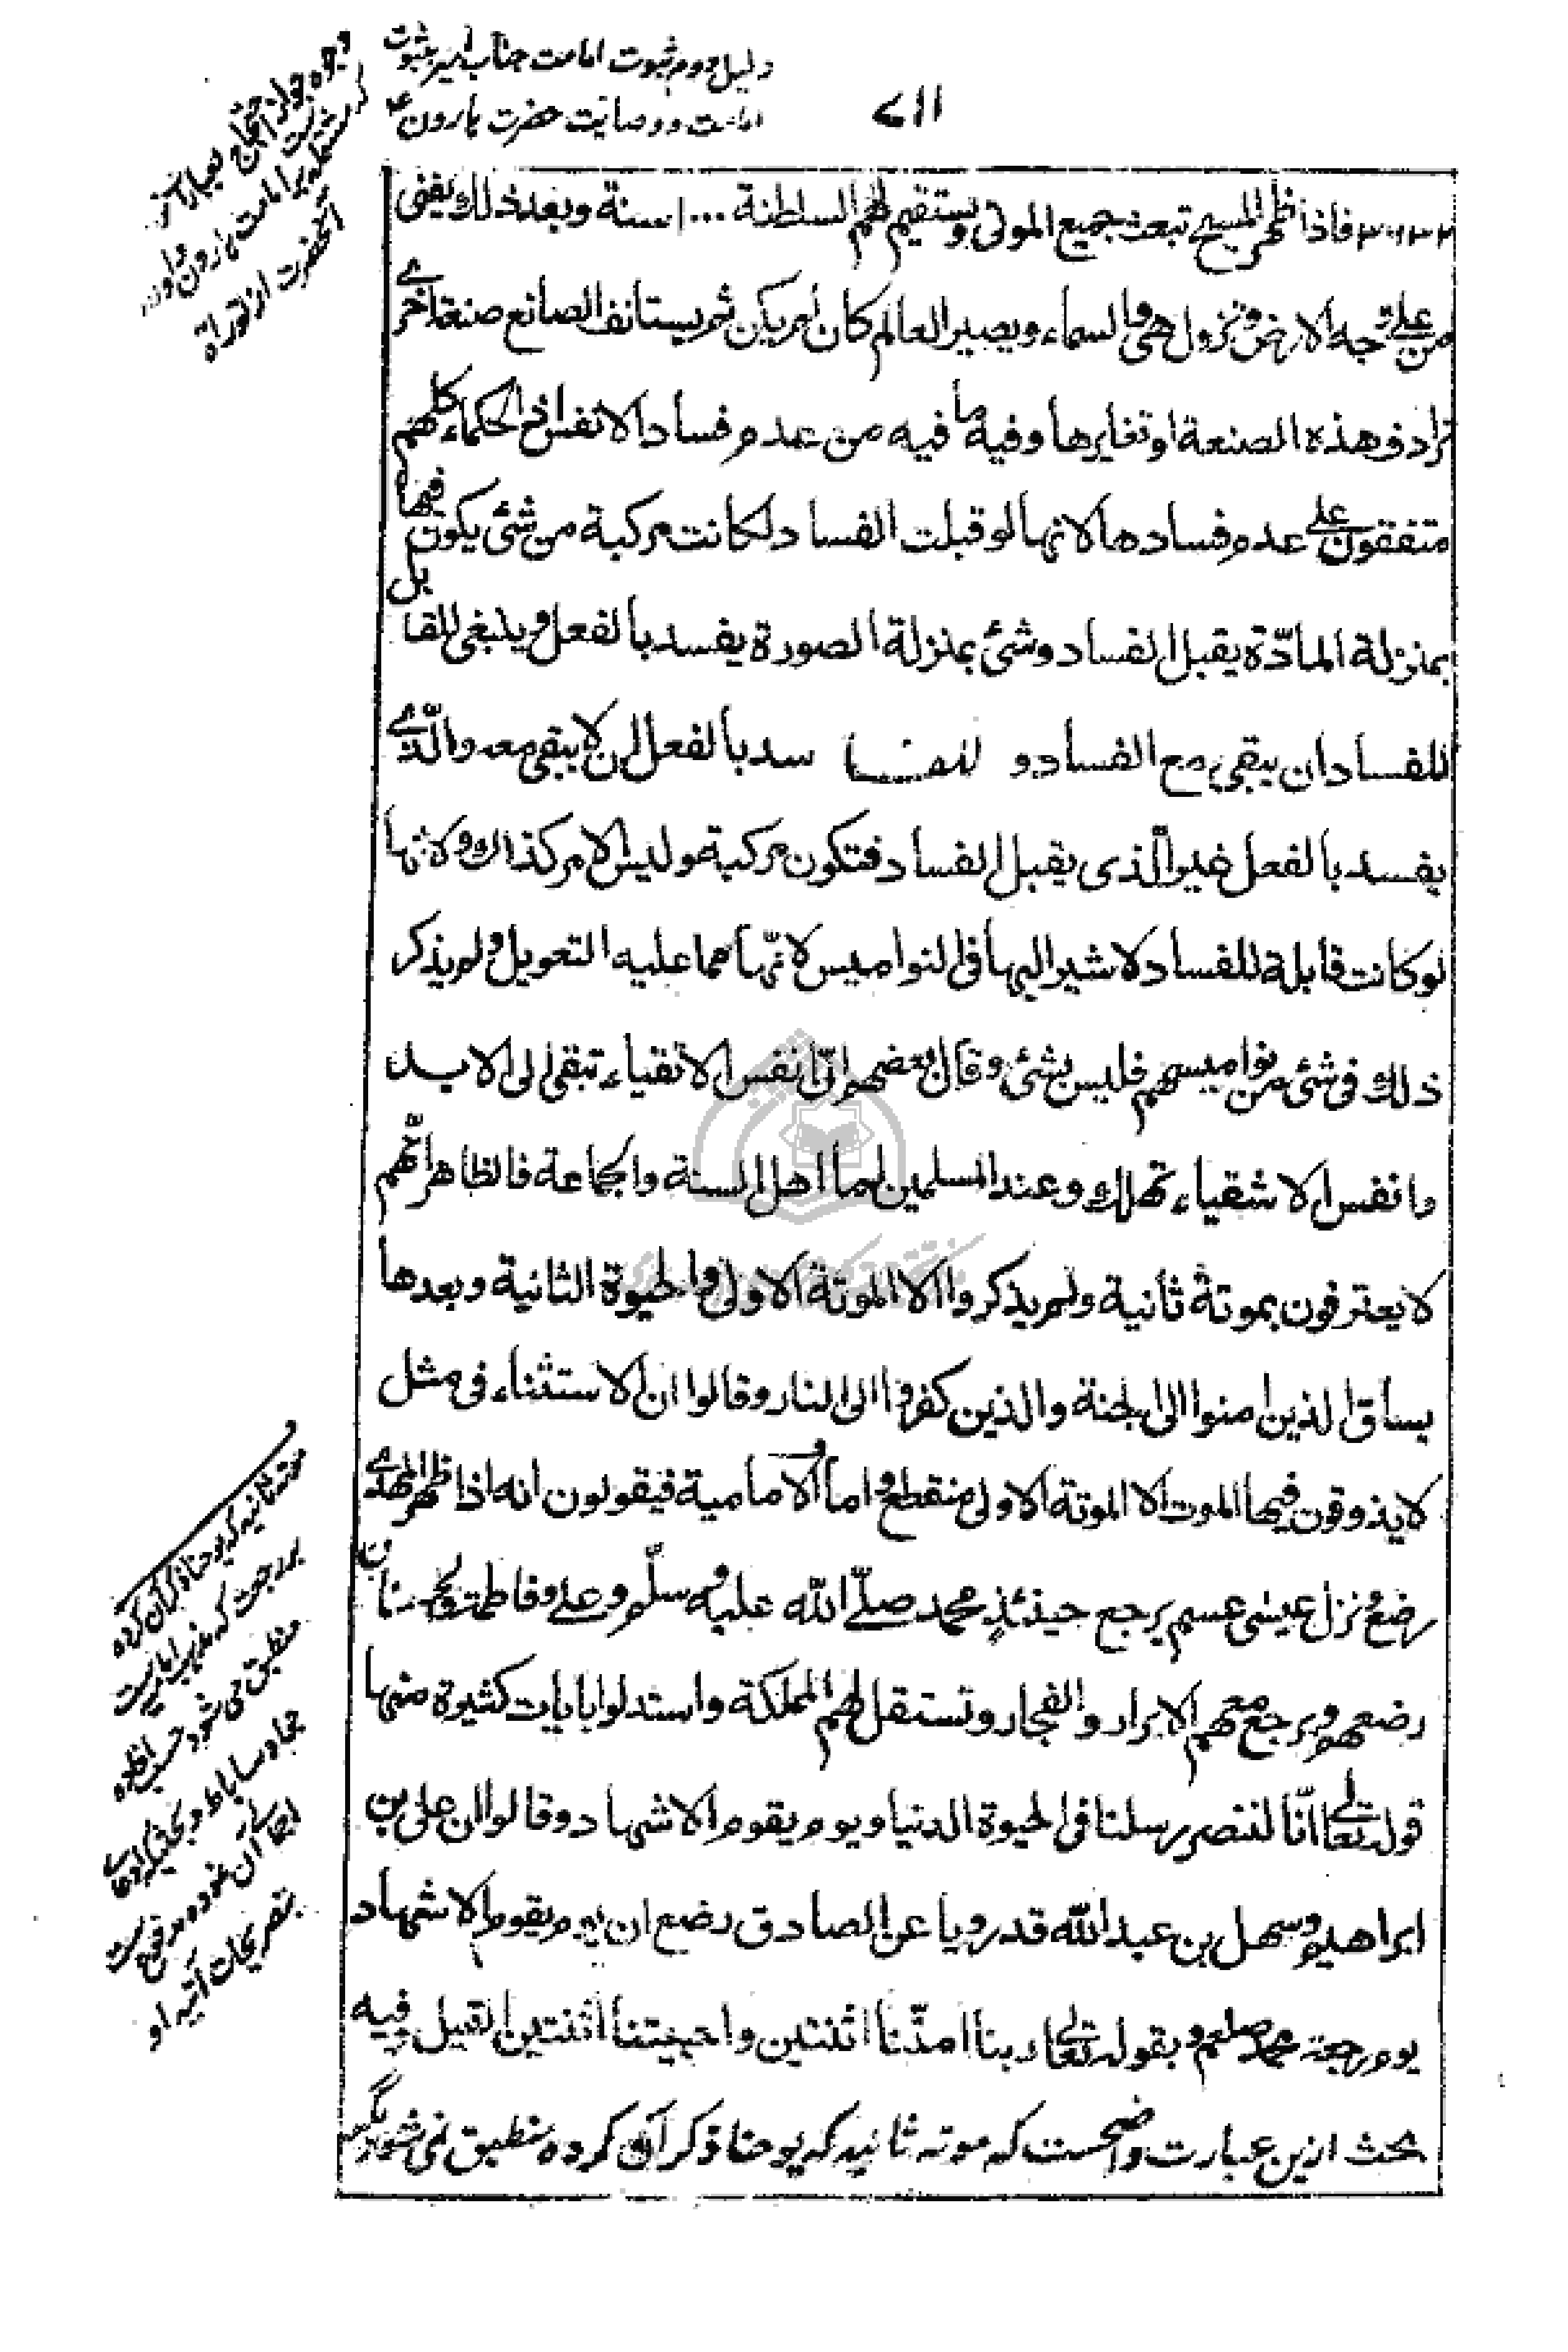 دلیل دوم ثبوت امامت جناب امیر بثبوت
امامت و وصایت حضرت هارون ع
۷۱۱
وجوه جواز احتجاج بعبارات
مشتمله بر امامت هارون و
آنحضرت از توراة
فاذا ظهر المسیح تبعث جمیع الموتی ویستقیم لهم السلطنة ۱۰۰۰ سنة وبعد ذلك یفنی
من علی وجه الارض ویزول هی والسماء ویصیر العالم کان لم یکن ثم یستانف الصانع صنعة اخری
ترادف هذه الصنعة او تغایرها وفیه ما فیه من عدم فساد الانفس اذ الحکماء کلهم
متفقون علی عدم فسادها لانها لو قبلت الفساد لکانت مرکبة من شئ یکون فیها
بمنزلة المادّة یقبل الفساد وشئ بمنزلة الصورة یفسد بالفعل وینبغی للقابل
للفساد ان یبقی مع الفساد و سد بالفعل ان لا یبقی معه والّذی
یفسد بالفعل غیر الّذی یقبل الفساد فتکون مرکبة ولیس الامر کذلك ولانها
لو کانت قابلة للفساد لاشیر الیها فی النوامیس لانّها مما علیه التعویل ولم یذکر
ذلك فی شئ من نوامیسهم فلیس بشئ وقال بعضهم انّ انفس الاتقیاء تبقی الی الابد
وانفس الاشقیاء تهلك وعند المسلمین اما اهل السنة والجماعة فالظاهر انّهم
لا یعترفون بموتة ثانیة ولم یذکروا الا الموتة الاولی والحیوة الثانیة وبعدها
یساق الذین امنوا الی الجنة والذین کفروا الی النار وقالوا ان الاستثناء فی مثل
لا یذوقون فیها الموت الا الموتة الاولی منقطع واما الامامیة فیقولون انه اذا ظهر المهدی
رضع ونزل عیسی عسم یرجع حینئذٍ محمد صلّے اللّه علیه وسلّم وعلی وفاطمة والحسنان
رضعهم ویرجع معهم الابرار والفجار وتستقل لهم المملکة واستدلوا بایات کثیرة منها
قوله تعالی انّا لننصر رسلنا فی الحیوة الدنیا ویوم یقوم الاشهاد وقالوا ان علی بن
ابراهیم وسهل بن عبد اللّه قد رویا عن الصادق رضع ان یوم یقوم الاشهاد
یوم رجعة محمد صلعم وبقوله تعالی ربنا امتّنا اثنتین واحییتنا اثنتین القیل فیه
بحث ازین عبارت واضحست که موته ثانیه که یوحنا ذکر آن کرده منطبق نمی شود مگر
موته ثانیه که یوحنا ذکر آن کرده
بر رجعت که مذهب امامیه است
منطبق می شود حسب افاده
جواد ساباط و
آن نموده مدفوع ست
بتصریحات آتیه او